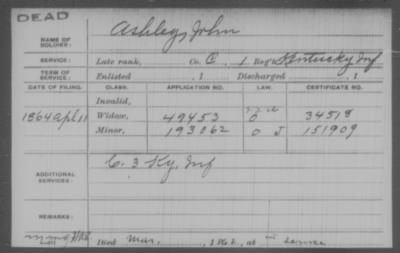 DEAD
NAME OF SOLDIER: Ashley, John
SERVICE: Late rank, Co. C, 1 Reg't Kentucky Inf
TERM OF SERVICE: Enlisted , 1 Discharged , 1
DATE OF FILING. CLASS. APPLICATION NO. LAW. CERTIFICATE NO.
Invalid,
1864 Apl 11 Widow, 49453 O 34518
Minor, 193062 O J 151909
ADDITIONAL SERVICES: C. 3 Ky. Inf
REMARKS:
Died Mar, , 186 , at